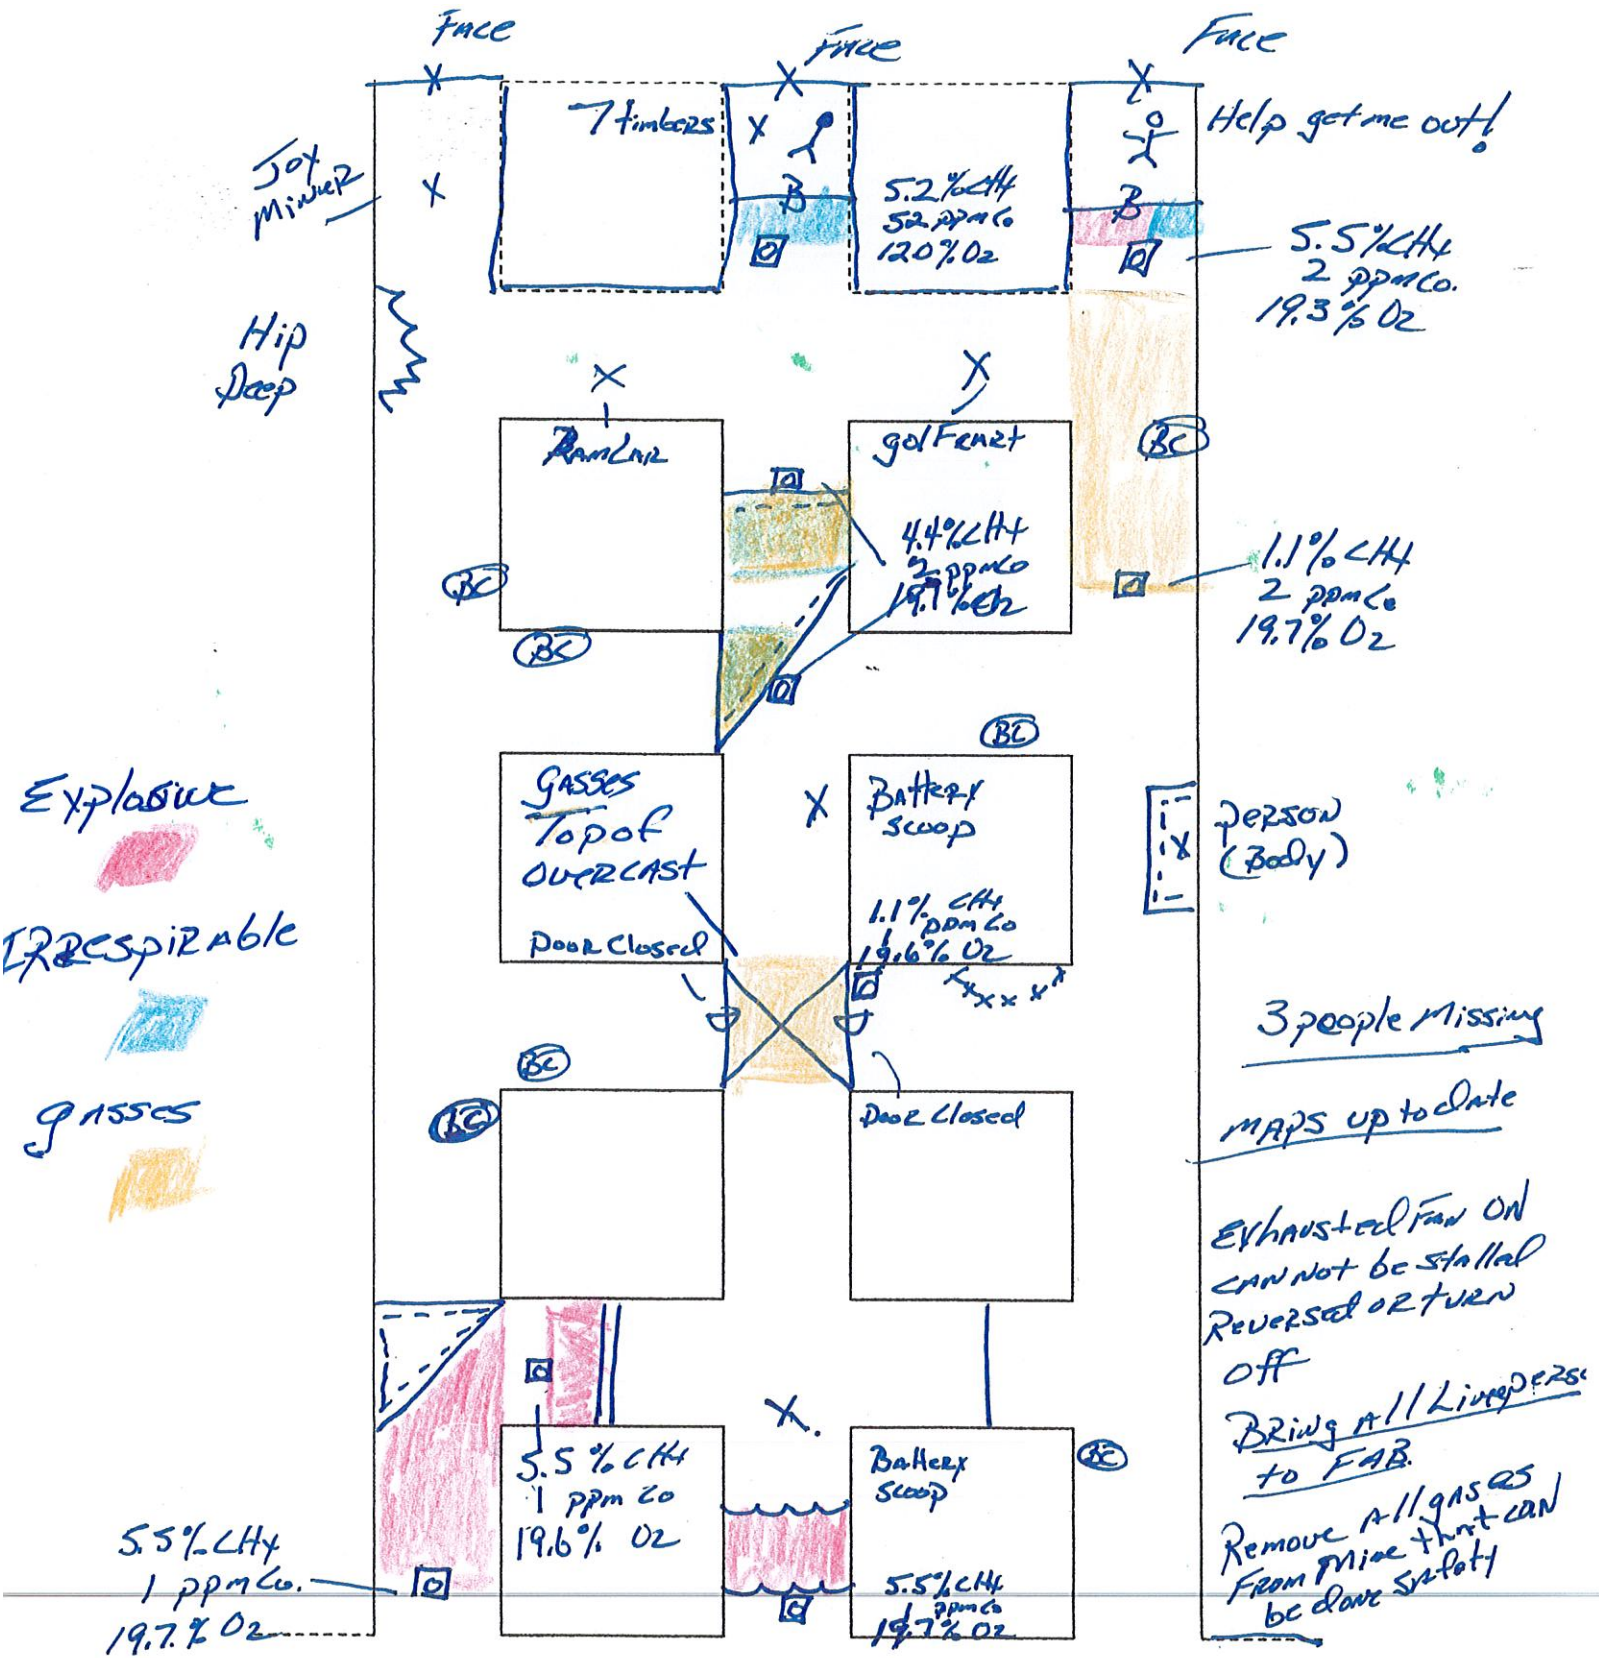 Face
Face
Face
X
X
X
7 timbers
X
Help get me out!
Joy
Miner
X
B
B
5.2% CH4
52 ppm Co
12.0% O2
5.5% CH4
2 ppm Co.
19.3% O2
Hip
Deep
X
X
Ram Car
golf Kart
BC
4.4% CH4
2 ppm Co
19.7% O2
1.1% CH4
2 ppm Co
19.7% O2
BC
BC
BC
Explosive
IRRespiRAble
gASSes
gASSes
Top of
OverCAST
Door Closed
X
BAttery
Scoop
1.1% CH4
1 ppm Co
19.6% O2
x x x x x x
X
peRSON
(Body)
3 people Missing
MAPS up to date
BC
BC
Door Closed
ExhAusted FAN ON
CAN Not be stAlled
Reversed OR turN
Off
BRing All Live pers
to FAB.
Remove All gASes
From Mine thAt CAN
be done SAfely
X
5.5% CH4
1 ppm Co
19.6% O2
BAttery
Scoop
BC
5.5% CH4
1 ppm Co
19.7% O2
5.5% CH4
1 ppm Co.
19.7% O2